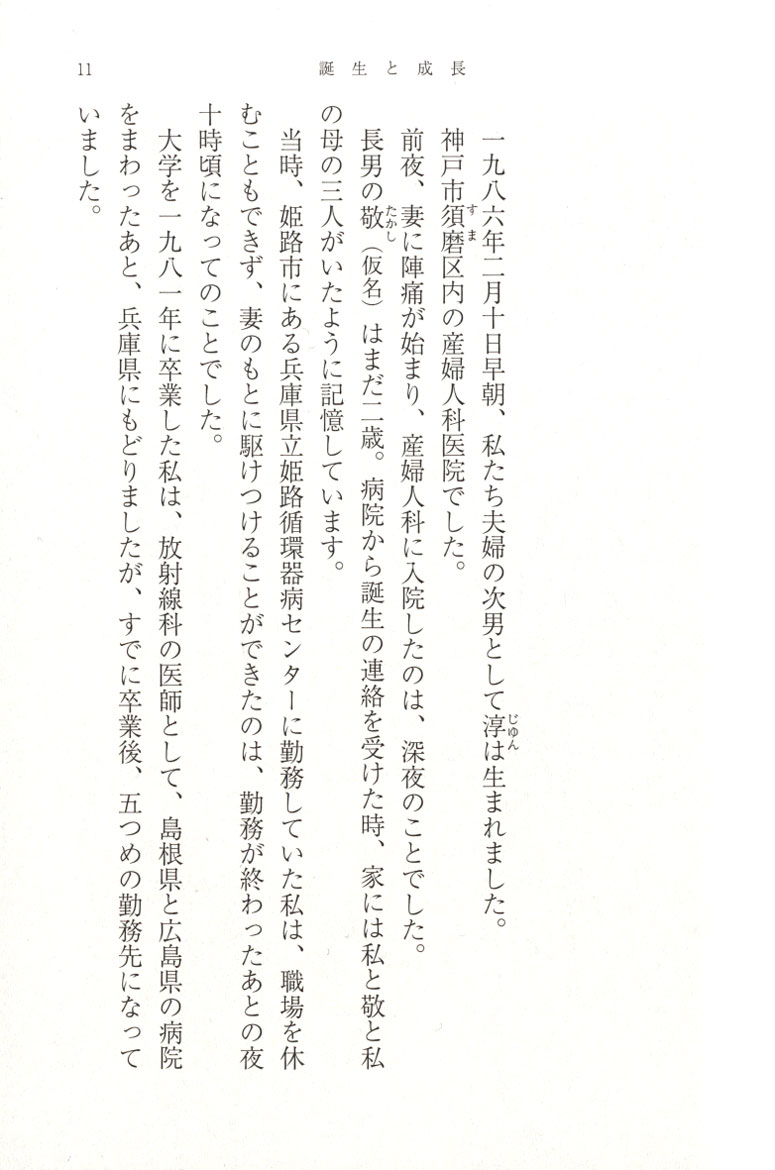 11
誕生と成長
一九八六年二月十日早朝、私たち夫婦の次男として淳は生まれました。
じゆん
神戸市須磨区内の産婦人科医院でした。
すま
前夜、妻に陣痛が始まり、産婦人科に入院したのは、深夜のことでした。
長男の敬（仮名）はまだ二歳。病院から誕生の連絡を受けた時、家には私と敬と私
たかし
の母の三人がいたように記憶しています。
当時、姫路市にある兵庫県立姫路循環器病センターに勤務していた私は、職場を休
むこともできず、妻のもとに駆けつけることができたのは、勤務が終わったあとの夜
十時頃になってのことでした。
大学を一九八一年に卒業した私は、放射線科の医師として、島根県と広島県の病院
をまわったあと、兵庫県にもどりましたが、すでに卒業後、五つめの勤務先になって
いました。